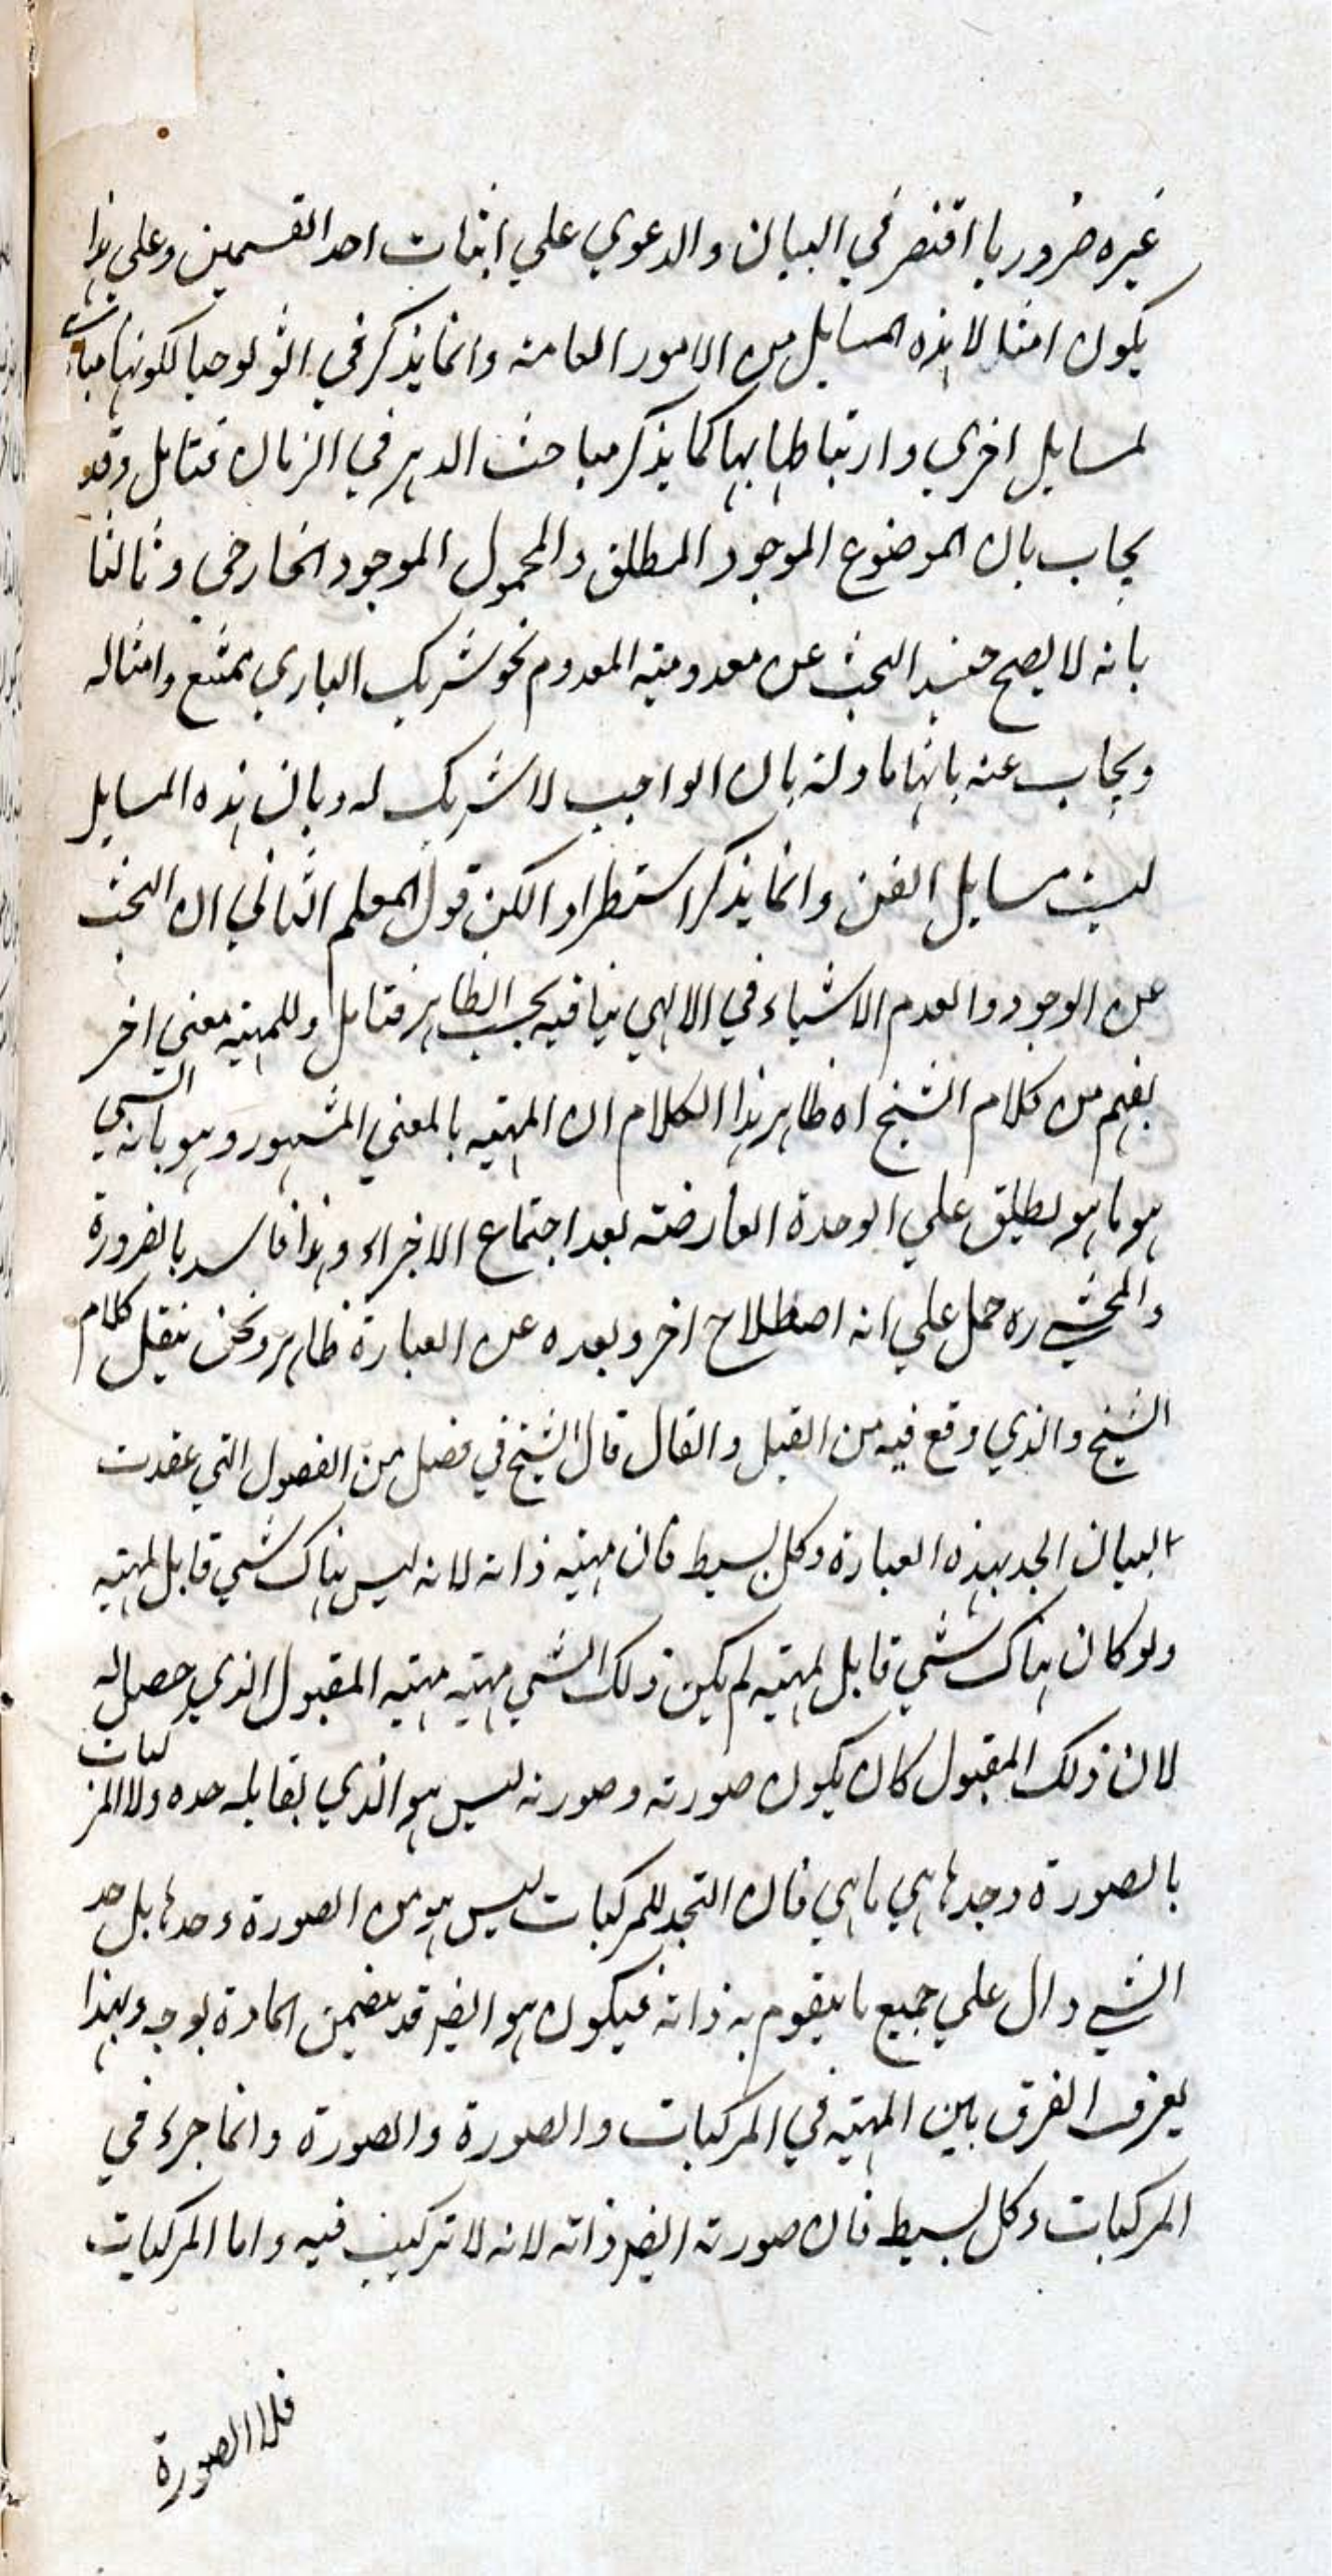 غيره ضروريا اقتصر في البيان والدعوي علي اثبات احد القسمين وعلي هذا
يكون امثال هذه المسايل من الامور العامة وانما يذكر في اثولوجيا لكونها مباديات
لمسايل اخري وارتباطها بها كما يذكر مباحث الدهر في الزمان فتامل وقد
يجاب بان الموضوع الموجود المطلق والمحمول الموجود الخارجي وثالثا
بانه لا يصح حينئذ البحث عن معدومية المعدوم نحو شريك الباري ممتنع وامثاله
ويجاب عنه بانها ماولة بان الواجب لا شريك له وبان هذه المسايل
ليست مسايل الفن وانما يذكر استطرادا لكن قول المعلم الثاني ان البحث
عن الوجود والعدم الاشياء في الالهي ينافيه بحسب الظاهر فتامل وللمهية معني اخر
يفهم من كلام الشيخ اه ظاهر هذا الكلام ان المهية بالمعني المشهور وهو بانه الشي
هو ما هو يطلق علي الوحدة العارضة بعد اجتماع الاجزاء وهذا فاسد بالضرورة
والمحشي ره حمل علي انه اصطلاح اخر وبعده عن العبارة ظاهر ونحن ننقل كلام
الشيخ والذي وقع فيه من القيل والقال قال الشيخ في فصل من الفصول التي عقدت
لبيان الحد بهذه العبارة وكل بسيط فان مهية ذاته لانه ليس هناك شي قابل لمهية
ولو كان هناك شي قابل لمهية لم يكن ذلك الشي مهية مهية المقبول الذي حصل له
لان ذلك المقبول كان يكون صورته وصورته ليس هو الذي يقابله حده ولا المركبات
بالصورة وحدها هي ما هي فان الحد للمركبات ليس هو من الصورة وحدها بل حد
الشي دال علي جميع ما يتقوم به ذاته فيكون هو ايضا قد يتضمن المادة بوجه وبهذا
يعرف الفرق بين المهية في المركبات والصورة والصورة وانما جزء في
المركبات وكل بسيط فان صورته ايضا ذاته لانه لا تركيب فيه واما المركبات
فلا الصورة